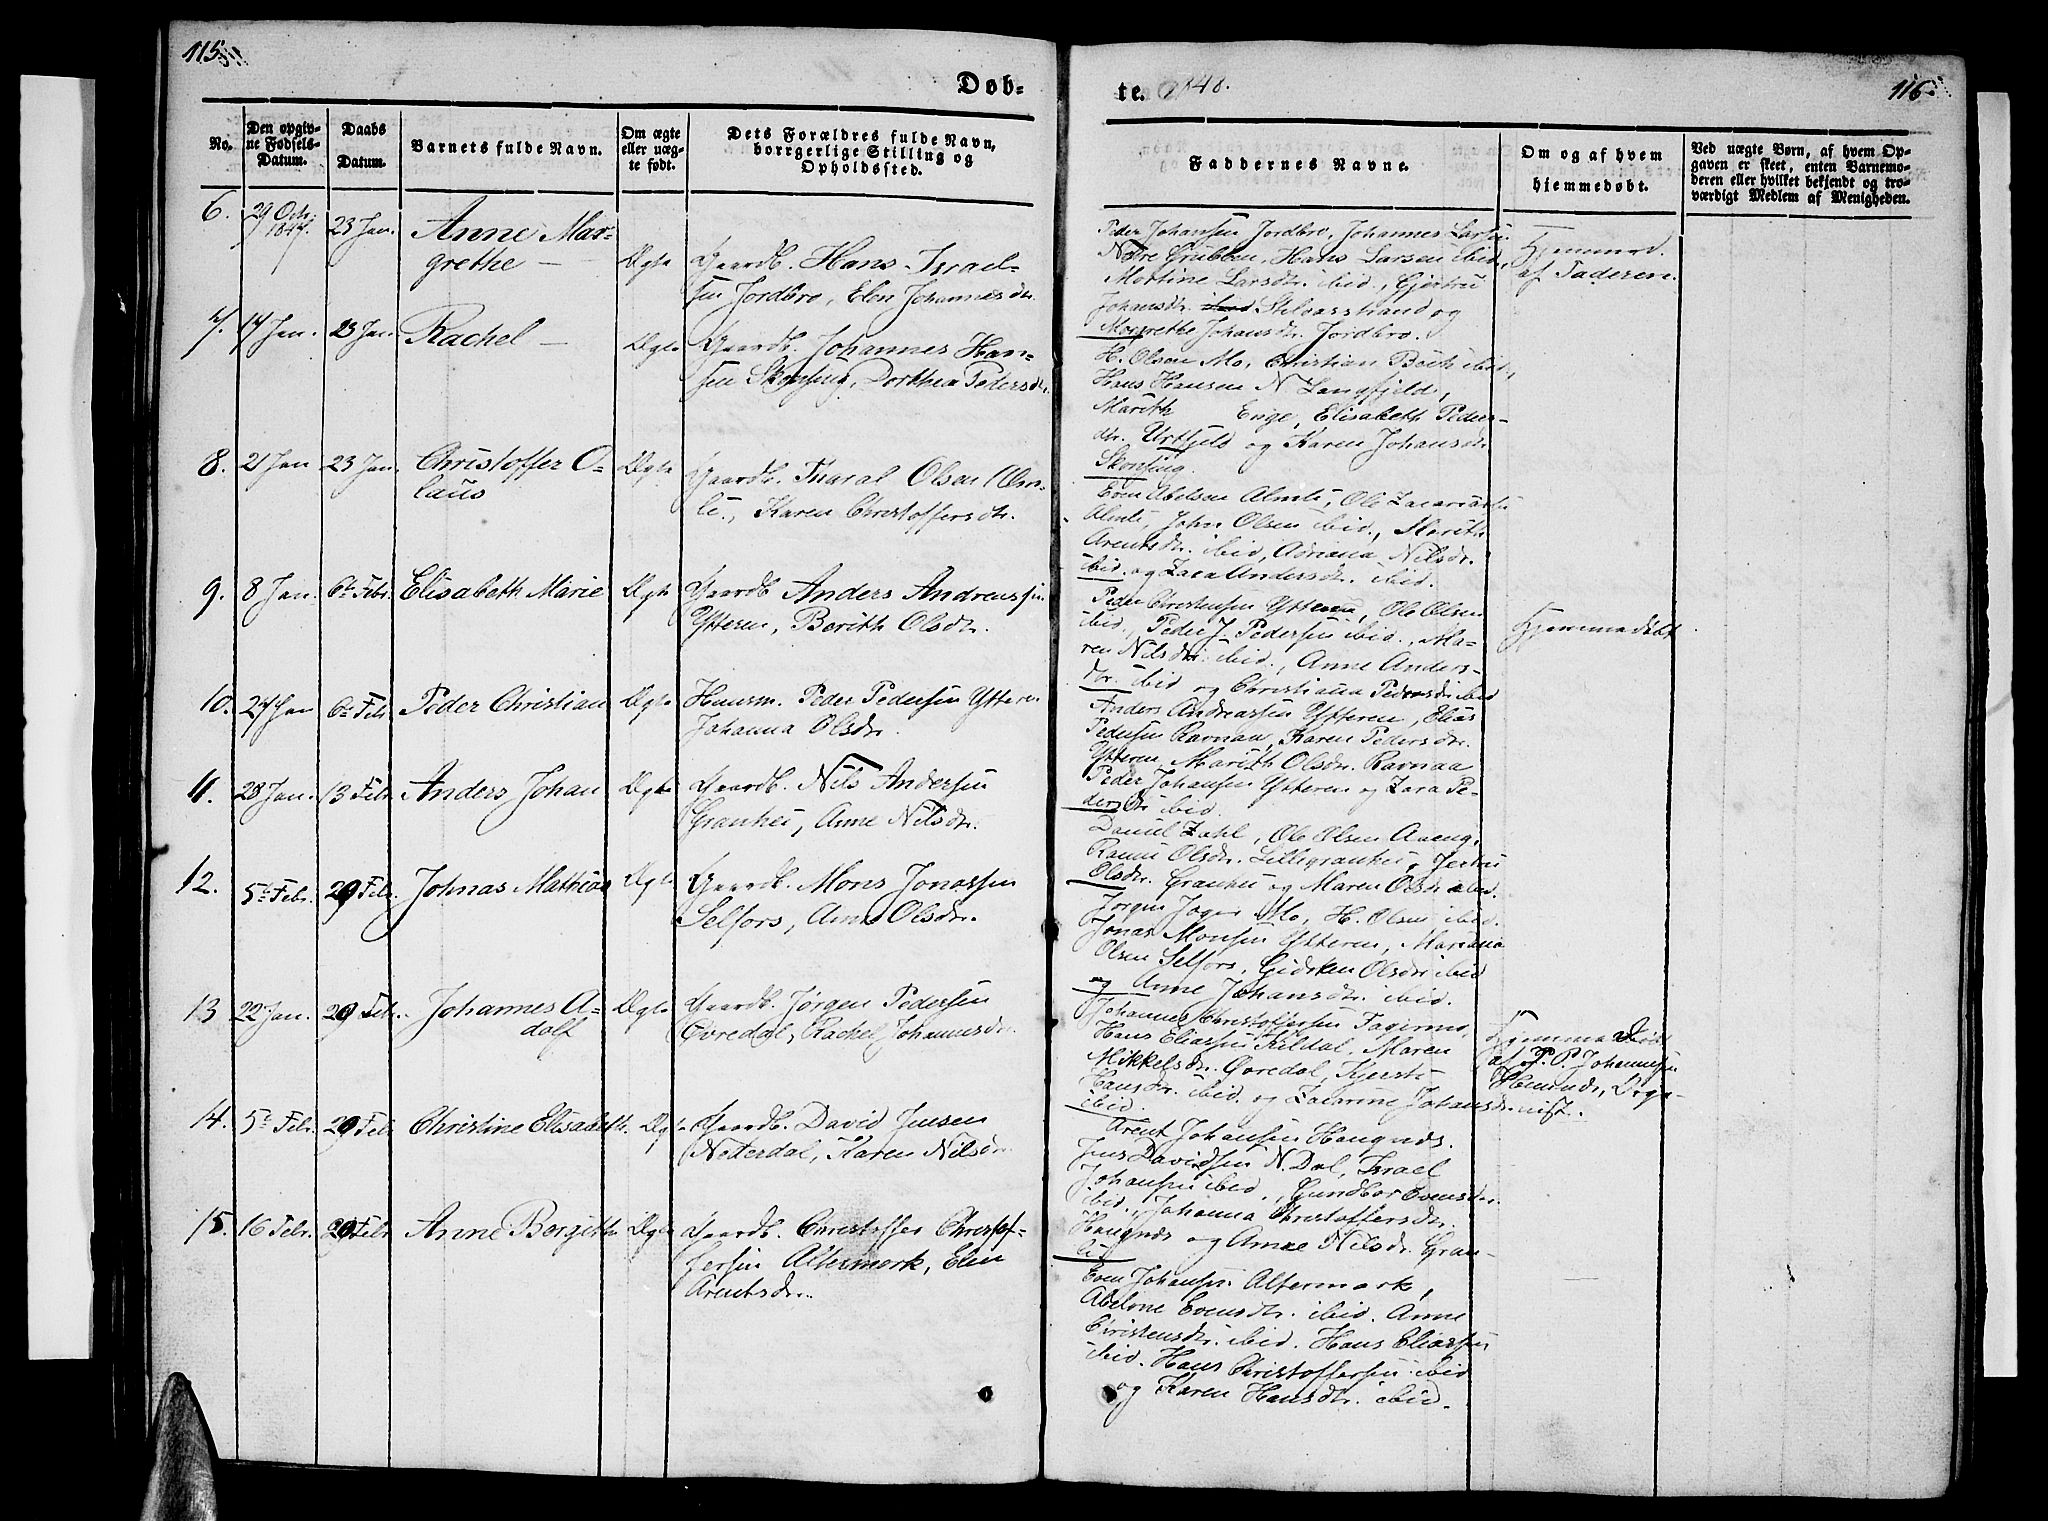 115.
Døb-
No.
Den opgiv-
ne Fødsels-
Datum.
Daabs
Datum.
Barnets fulde Navn.
Om ægte
eller uæg-
te født.
Dets Forældres fulde Navn,
borrgerlige Stilling og
Opholdssted.
6. 29 Octr. 1847. 23 Jan. Anne Mar-
grethe — Ægte Gaardb. Hans Israel-
sen Jordbro, Elen Johannesdr.
7. 17 Jan. 23 Jan. Rachel — Ægte Gaardb. Johannes Han-
sen Skonsing, Dorthea Pedersdr.
8. 21 Jan 23 Jan. Christoffer O-
laus Ægte Gaardb. Tharal Olsen Alm-
li., Karen Christoffersdr.
9. 8 Jan. 6te Febr. Elisabeth Marie Ægte Gaardb Anders Andreassen
Ytteren, Berith Olsdr.
10. 27 Jan 6te Febr Peder Christian Ægte Huusm. Peder Pedersen Ytteren
Johanna Olsdr.
11. 28 Jan. 13 Febr. Anders Johan Ægte Gaardb. Nils Andersen
Granhei, Anne Nilsdr.
12. 5te Febr. 20 Febr. Johnas Mathias Ægte Gaardb. Mons Jonassen
Selfors, Anne Olsdr.
13 22 Jan. 20 Febr. Johannes A-
dolf Ægte Gaardb. Jørgen Pedersen
Øvredal, Rachel Johannesdr.
14. 5te Febr. 20 Febr Christine Elisabeth. Ægte Gaardb. David Jensen
Netterdal, Karen Nilsdr.
15. 16 Febr. 20 Febr. Anne Bergith Ægte Gaardb. Christoffer Christof-
fersen Altermark, Elen
Arentsdr.
te. 1848.
116.
Faddernes Navne.
Om og af hvem
hjemmedøbt.
Ved uægte Børn, af hvem Op-
gaven er skeet, enten Barnemo-
deren eller hvilket bekjendt og tro-
værdigt Medlem af Menigheden.
Peder Johansen Jordbro, Johannes Larsen
Nedre Grubben, Hans Larsen ibid,
Martine Larsdr. ibid., Gjertru
Johansdr. Stilvasstrand og
Margrethe Johansdr. Jordbro.
Hjemmed.
af Faderen.
H. Olsen Mo, Christian Bech ibid,
Hans Hansen N Langfjeld,
Marith Enge, Elisabeth Peders-
dr. Urtfjeld og Karen Johansdr
Skonsing.
Even Abelsen Almli, Ole Zacariasen
Almli, John Olsen ibid., Marith
Arentsdr. ibid, Adriana Nilsdr.
ibid. og Zara Andersdr. ibid.
Peder Christensen Ytteren, Ole Olsen
ibid., Peder J. Pedersen ibid., Ma-
ren Nilsdr. ibid., Anne Anders-
dr. ibid og Christiana Pedersdr ibid
Hjemmedøbt.
Anders Andreassen Ytteren, Elias
Pedersen Ravnaa, Karen Pedersdr.
Ytteren, Marith Olsdr. Ravnaa
Peder Johansen Ytteren og Zara Pe-
dersdr ibid.
Daniel Zahl, Ole Olsen Aaeng,
Olsdr. Lillegranhei, Jertru
Olsdr. Granhei og Maren Olsdr ibid.
Jørgen Mo, H. Olsen ibid.
Jonas Monsen Ytteren, Mariana
Olsen Selfors, Gidsken Olsdr ibid
og Anne Johansdr. ibid.
Johannes Christoffersen Fagermo,
Hans Eliassen Kildal, Maren
Mikkelsdr. Øvredal, Kjersti
Hansdr. ibid. og Johansdr.
ibid.
Hjemmedøbt
af P. P. Johannesen
Hemnæs, Orga-
nist.
Arent Johansen Haugnæs.
Jens Davidsen N.Dal, Israel
Johansen ibid., Gundbor Evensdr.
ibid., Johanna Christoffersdr.
Haugnæs og Anne Nilsdr. Gran-
li
Even Johansen Altermark,
Abelone Evensdr. ibid. Anne
Christensdr. ibid. Hans Eliassen
ibid. Hans Christoffersen ibid
og Karen Hansdr. ibid.